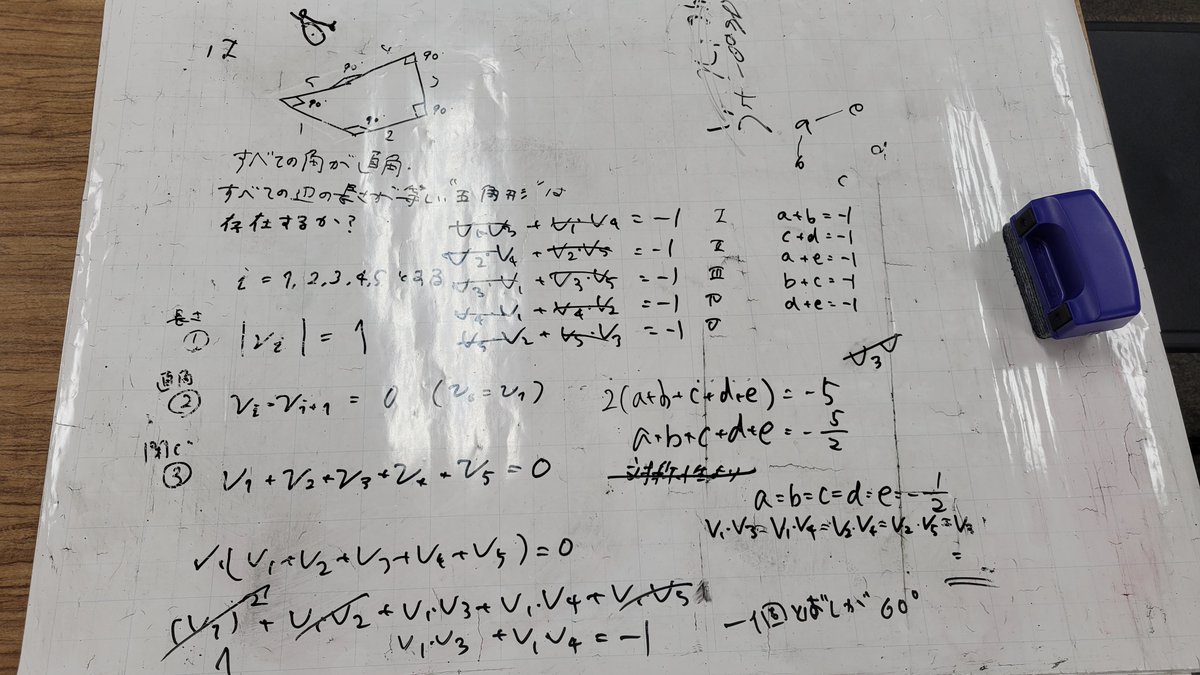 5 90° 4 90°
3
90° 90° 90°
1 2
すべての角が直角.
すべての辺の長さが等しい"五角形"は
存在するか?
i = 1, 2, 3, 4, 5
長さ
① |v_i| = 1
直角
② v_i・v_{i+1} = 0 (v_6 = v_1)
閉じ
③ v_1 + v_2 + v_3 + v_4 + v_5 = 0
v_1(v_1 + v_2 + v_3 + v_4 + v_5) = 0
(v_1)^2 + v_1・v_2 + v_1・v_3 + v_1・v_4 + v_1・v_5
1
v_1・v_3 + v_1・v_4 = -1
v_1・v_3 + v_1・v_4 = -1 I
v_2・v_4 + v_2・v_5 = -1 II
v_3・v_1 + v_3・v_5 = -1 III
v_4・v_1 + v_4・v_2 = -1 IV
v_5・v_2 + v_5・v_3 = -1 V
a e
b d
c
a+b=-1
c+d=-1
a+e=-1
b+c=-1
d+e=-1
v_3
2(a+b+c+d+e) = -5
a+b+c+d+e = -5/2
対称性より
a=b=c=d=e=-1/2
v_1・v_3=v_1・v_4=v_2・v_4=v_2・v_5=v_3
=
一個とばしが 60°